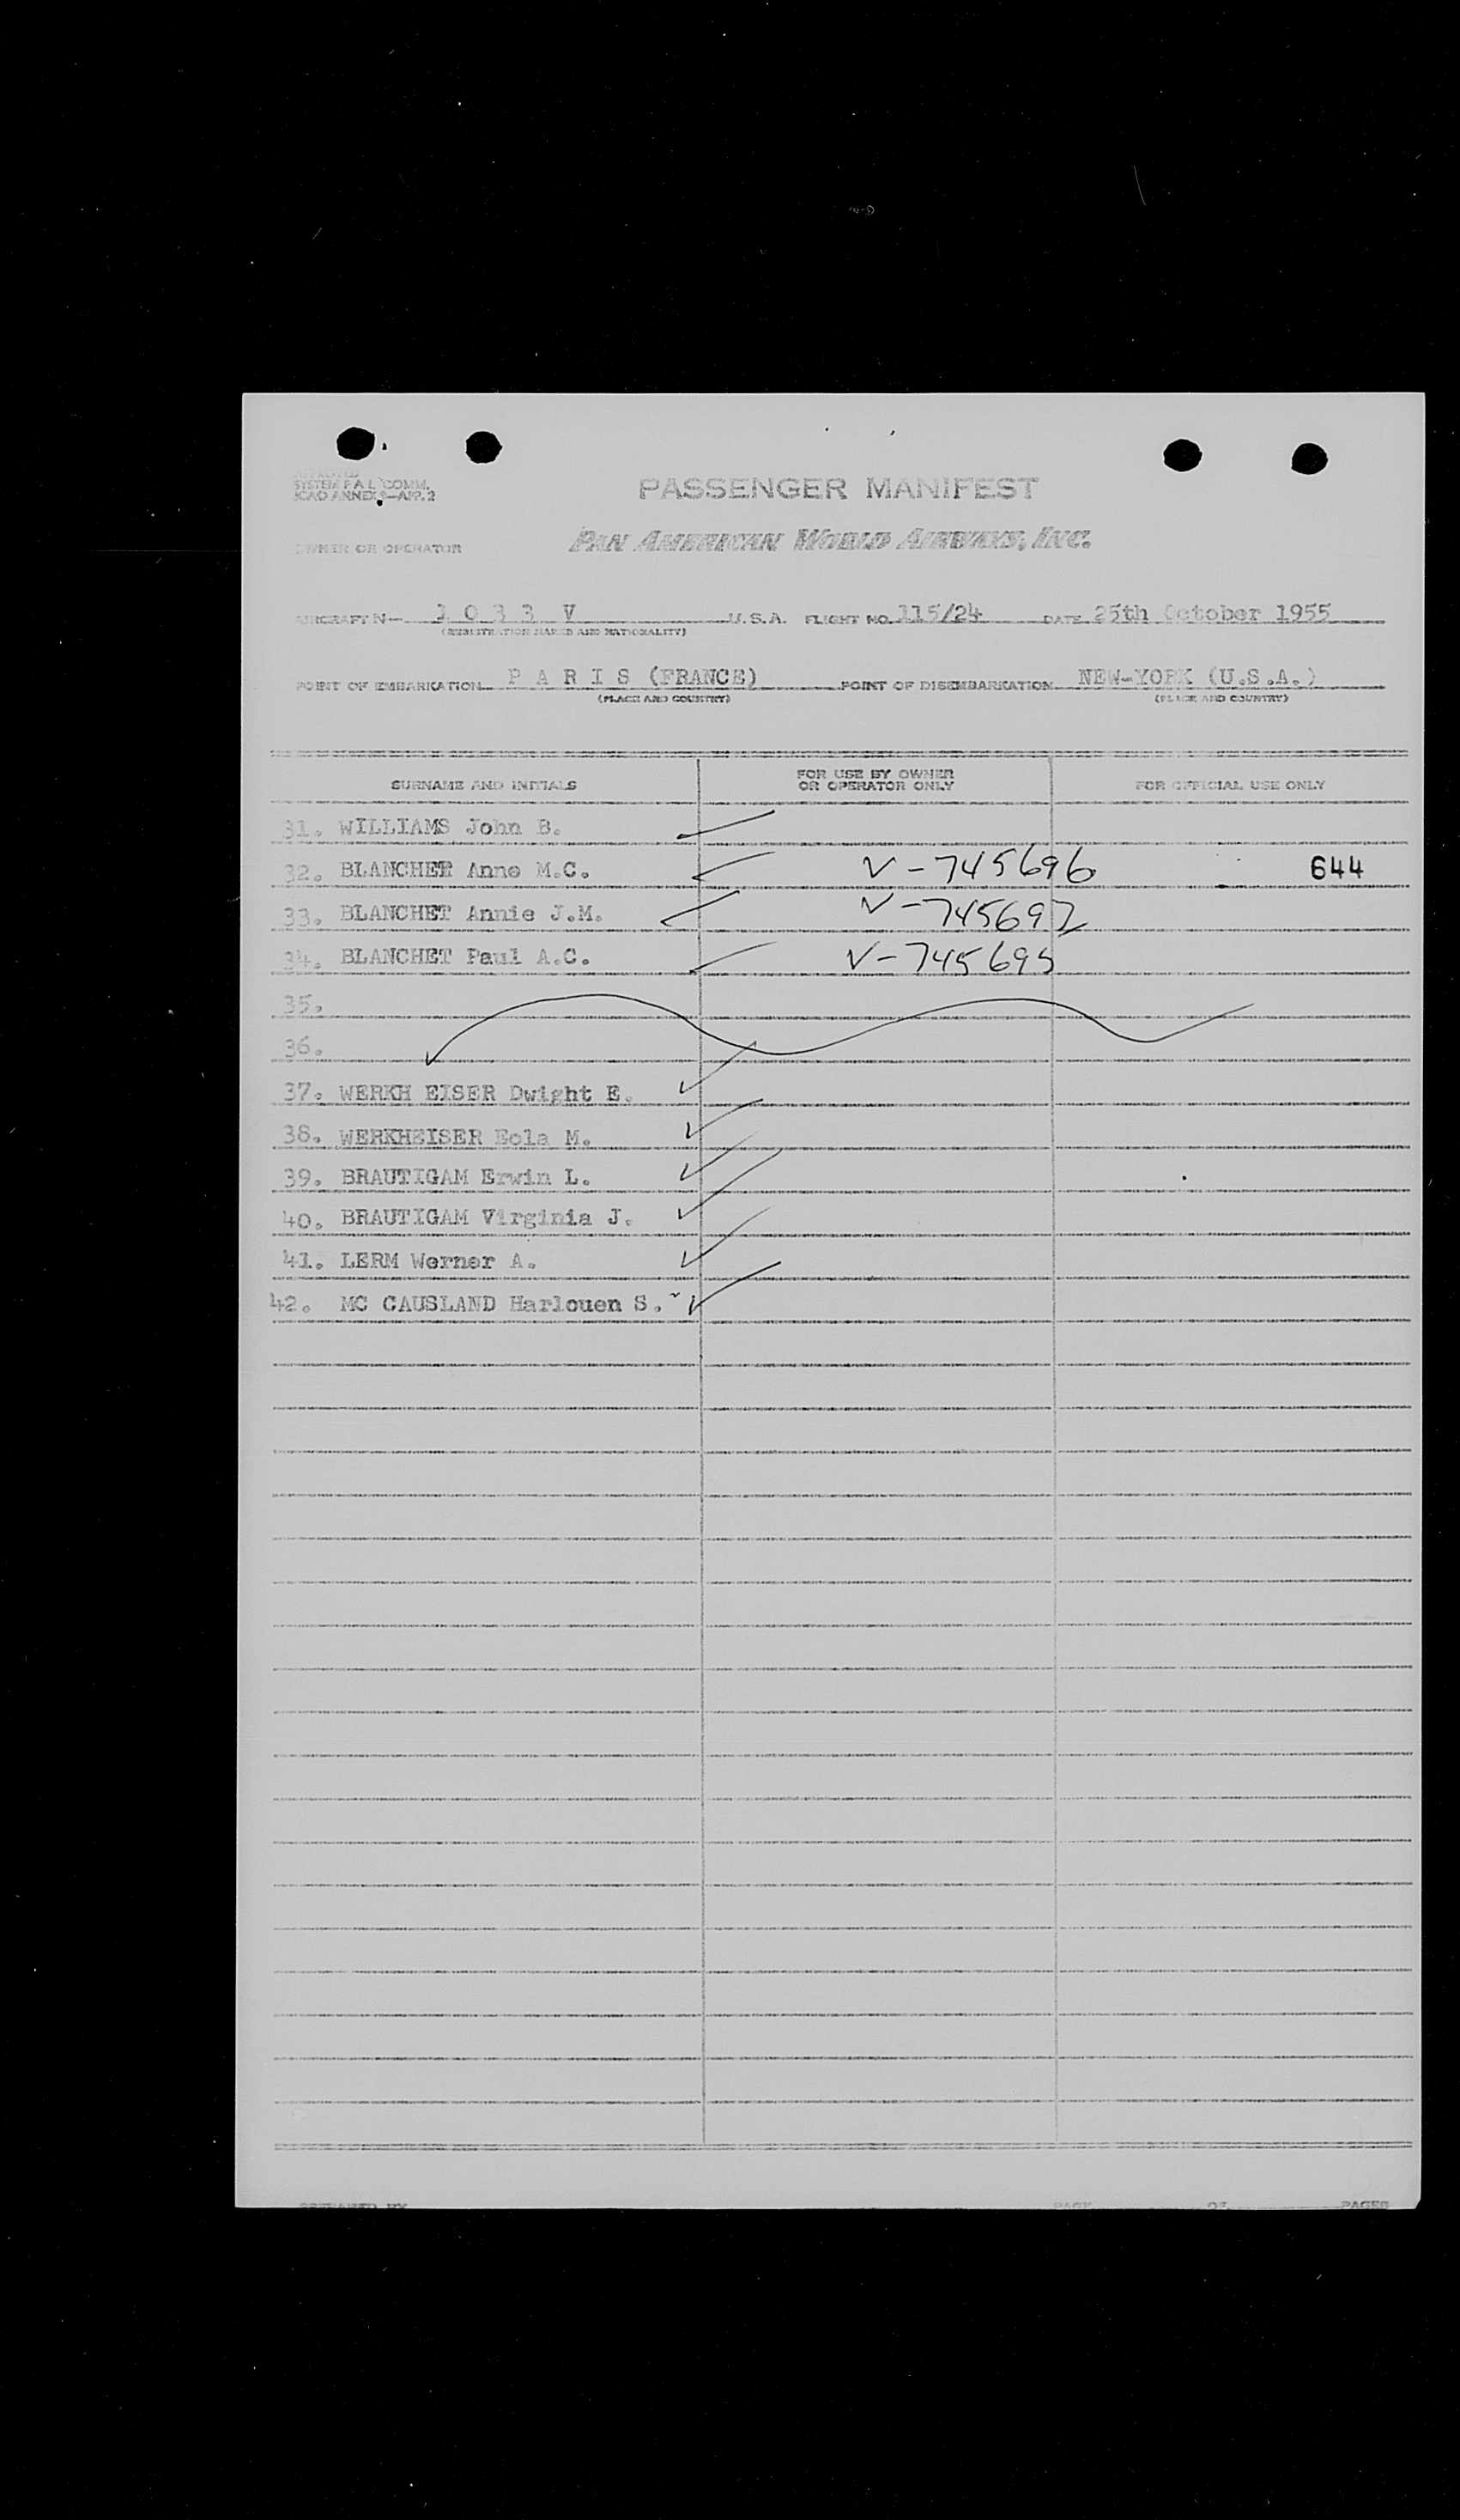 SYSTEM P A L COMM.
ICAO ANNEX 9—APP. 2
PASSENGER MANIFEST
OWNER OR OPERATOR PAN AMERICAN WORLD AIRWAYS, INC.
AIRCRAFT N— 1 0 3 3 V U.S.A. FLIGHT NO. 115/24 DATE 25th October 1955
(REGISTRATION MARKS AND NATIONALITY)
POINT OF EMBARKATION P A R I S (FRANCE) POINT OF DISEMBARKATION NEW-YORK (U.S.A.)
(PLACE AND COUNTRY) (PLACE AND COUNTRY)
SURNAME AND INITIALS FOR USE BY OWNER OR OPERATOR ONLY FOR OFFICIAL USE ONLY
31. WILLIAMS John B.
32. BLANCHET Anne M.C. V-745696 644
33. BLANCHET Annie J.M. V-745697
34. BLANCHET Paul A.C. V-745695
35.
36.
37. WERKH EISER Dwight E.
38. WERKHEISER Eola M.
39. BRAUTIGAM Erwin L.
40. BRAUTIGAM Virginia J.
41. LERM Werner A.
42. MC CAUSLAND Harlouen S.
PREPARED BY PAGE OF PAGES